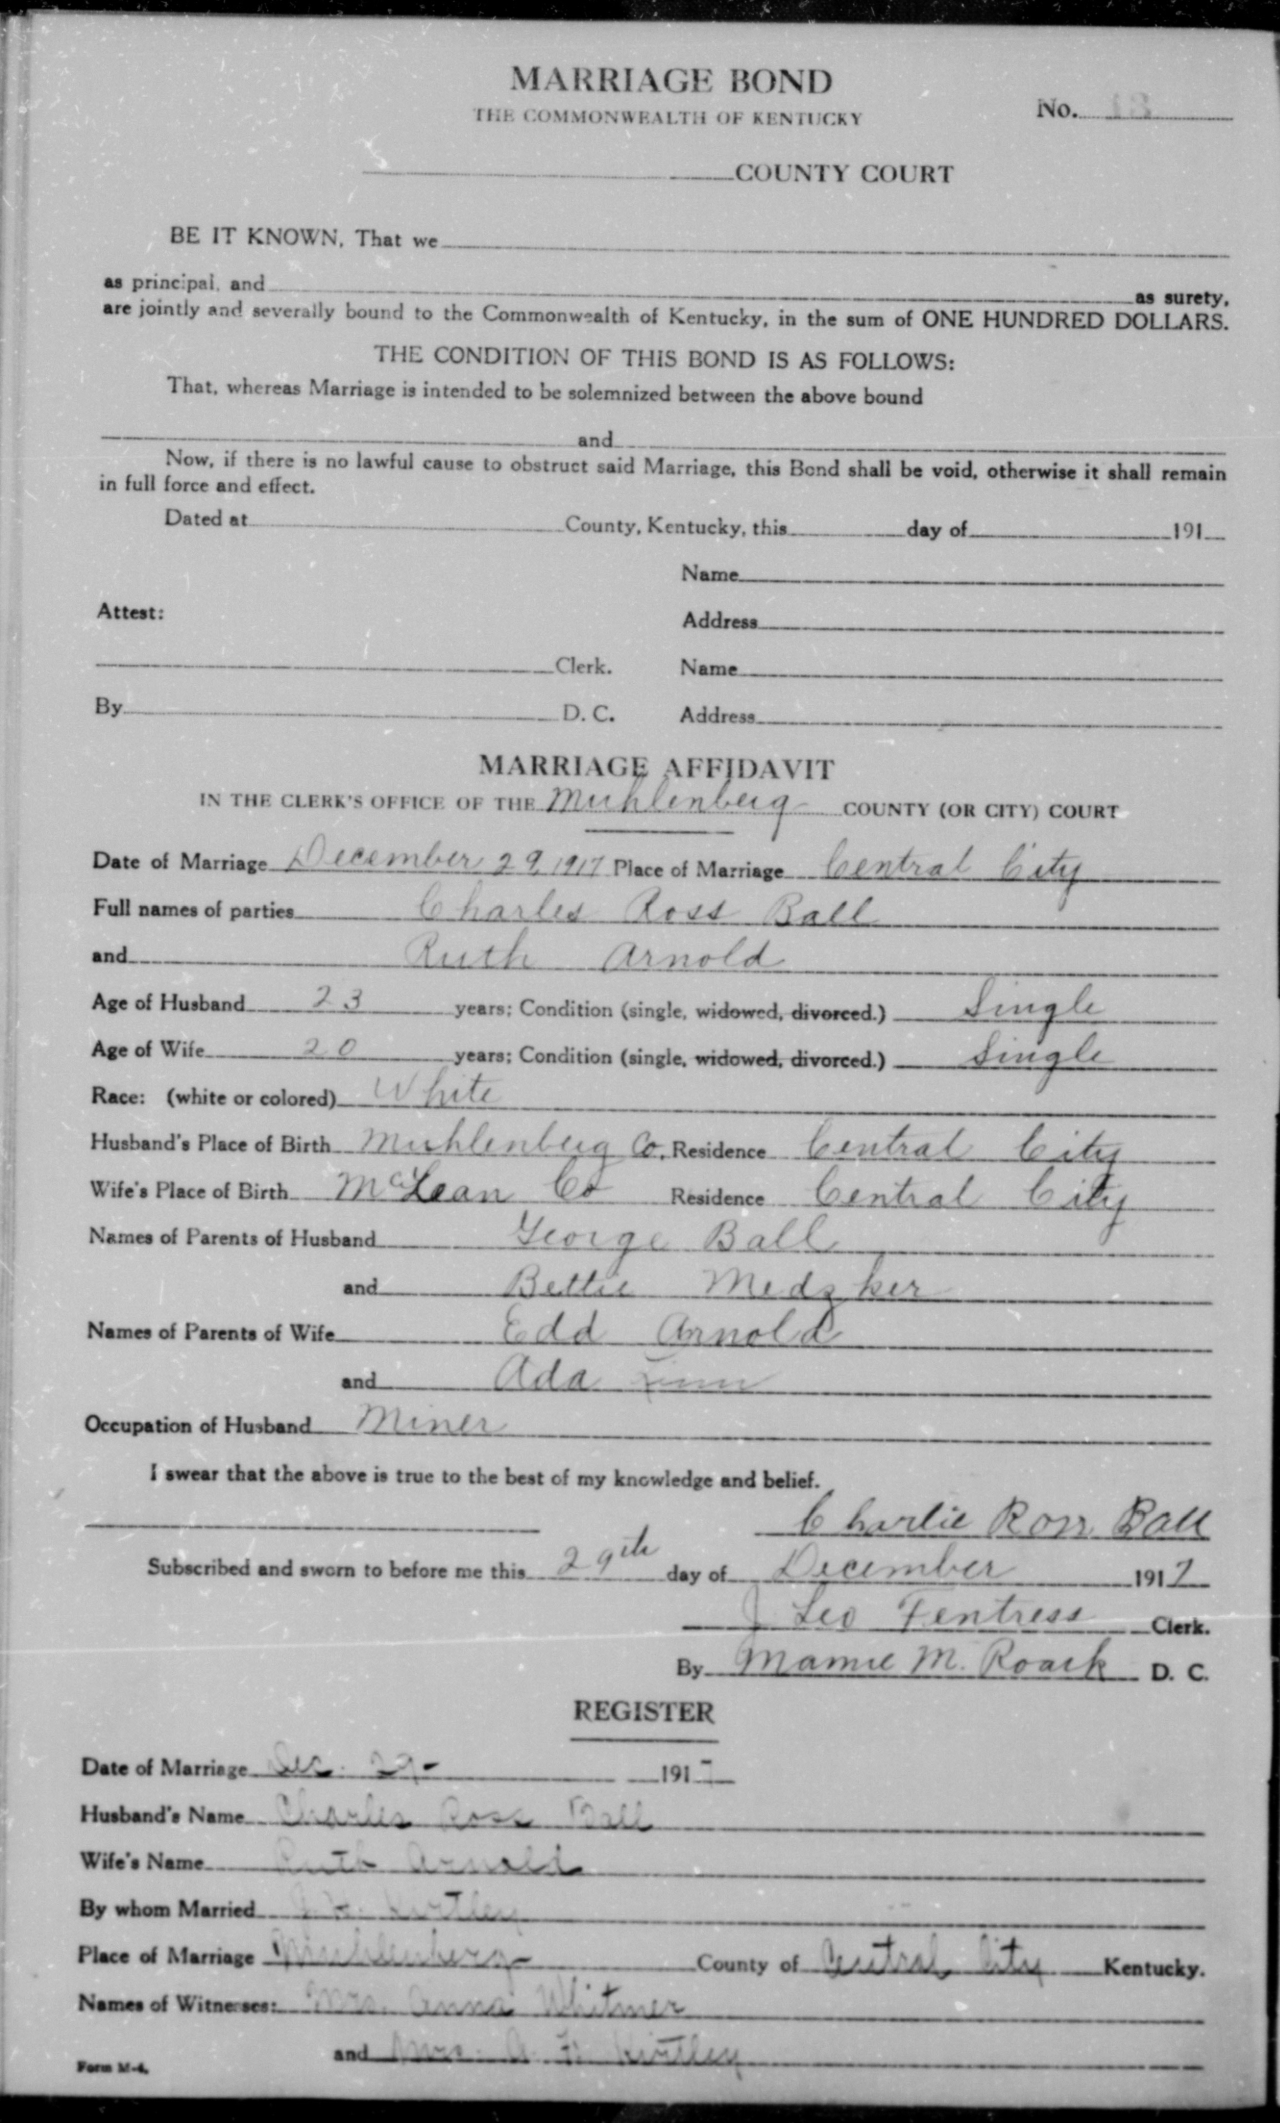 MARRIAGE BOND
THE COMMONWEALTH OF KENTUCKY
No. 13
COUNTY COURT
BE IT KNOWN, That we
as principal, and as surety,
are jointly and severally bound to the Commonwealth of Kentucky, in the sum of ONE HUNDRED DOLLARS.
THE CONDITION OF THIS BOND IS AS FOLLOWS:
That, whereas Marriage is intended to be solemnized between the above bound
and
Now, if there is no lawful cause to obstruct said Marriage, this Bond shall be void, otherwise it shall remain
in full force and effect.
Dated at County, Kentucky, this day of 191
Name
Attest:
Address
Clerk. Name
By D. C. Address
MARRIAGE AFFIDAVIT
IN THE CLERK'S OFFICE OF THE Muhlenberg COUNTY (OR CITY) COURT
Date of Marriage December 29, 1917 Place of Marriage Central City
Full names of parties Charles Ross Ball
and Ruth Arnold
Age of Husband 23 years; Condition (single, widowed, divorced.) Single
Age of Wife 20 years; Condition (single, widowed, divorced.) Single
Race: (white or colored) White
Husband's Place of Birth Muhlenberg Co. Residence Central City
Wife's Place of Birth McLean Co Residence Central City
Names of Parents of Husband George Ball
and Bettie Medzker
Names of Parents of Wife Edd Arnold
and Ada
Occupation of Husband Miner
I swear that the above is true to the best of my knowledge and belief.
Charlie Ross Ball
Subscribed and sworn to before me this 29th day of December 1917
J Leo Fentress Clerk.
By Mamie M. Roark D. C.
REGISTER
Date of Marriage Dec. 29- 1917
Husband's Name Charles Ross Ball
Wife's Name Ruth Arnold
By whom Married Kirtley
Place of Marriage Muhlenberg County of Central City Kentucky.
Names of Witnesses: Mrs. Anna Whitmer
and Mrs. A. F. Kirtley
Form M-4.